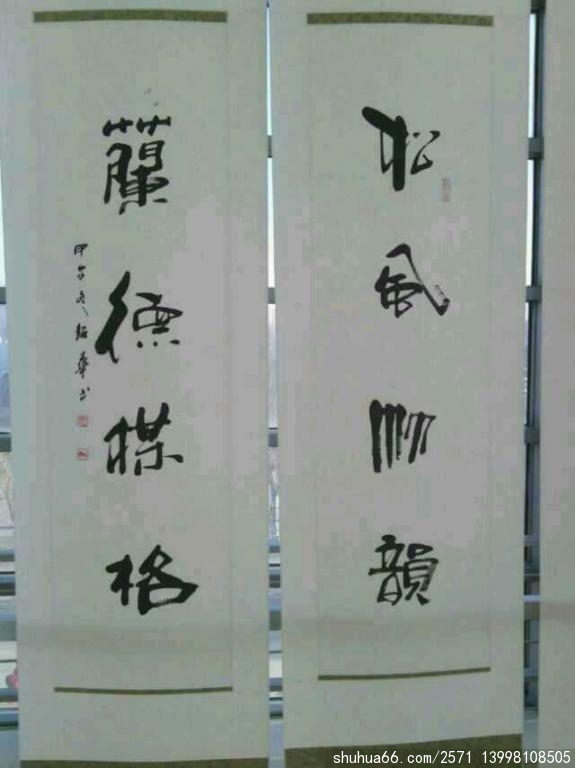 松風竹韻
蘭德楳格
甲午冬紹華书
shuhua66.com/2571 13998108505